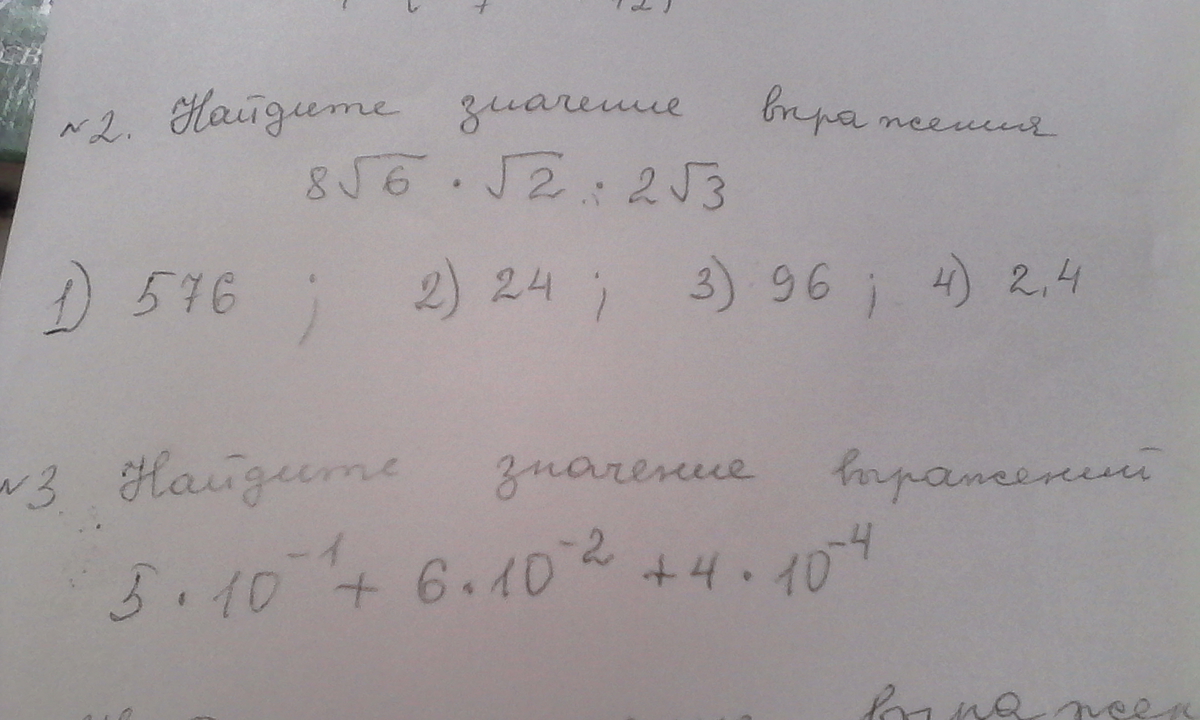 №2. Найдите значение выражения
8√6 · √2 : 2√3
1) 576 ; 2) 24 ; 3) 96 ; 4) 2,4
№3 Найдите значение выражений
5 · 10⁻¹ + 6 · 10⁻² + 4 · 10⁻⁴